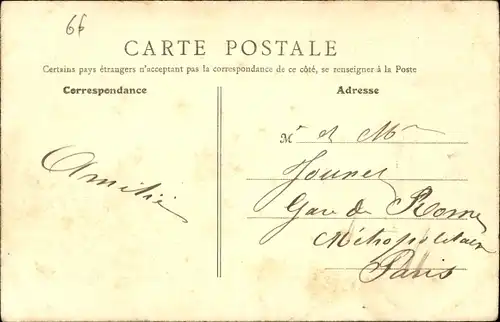 6f
CARTE POSTALE
Certains pays étrangers n'acceptant pas la correspondance de ce côté, se renseigner à la Poste
Correspondance
Adresse
Amitié
Mr et Mme
Gare de Rome
Métropolitain
Paris